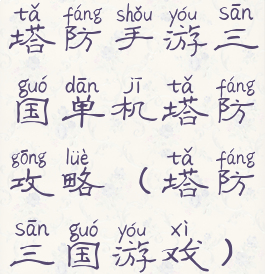 tǎ fáng shǒu yóu sān
塔防手游三
guó dān jī tǎ fáng
国单机塔防
gōng lüè tǎ fáng
攻略（塔防
sān guó yóu xì
三国游戏）